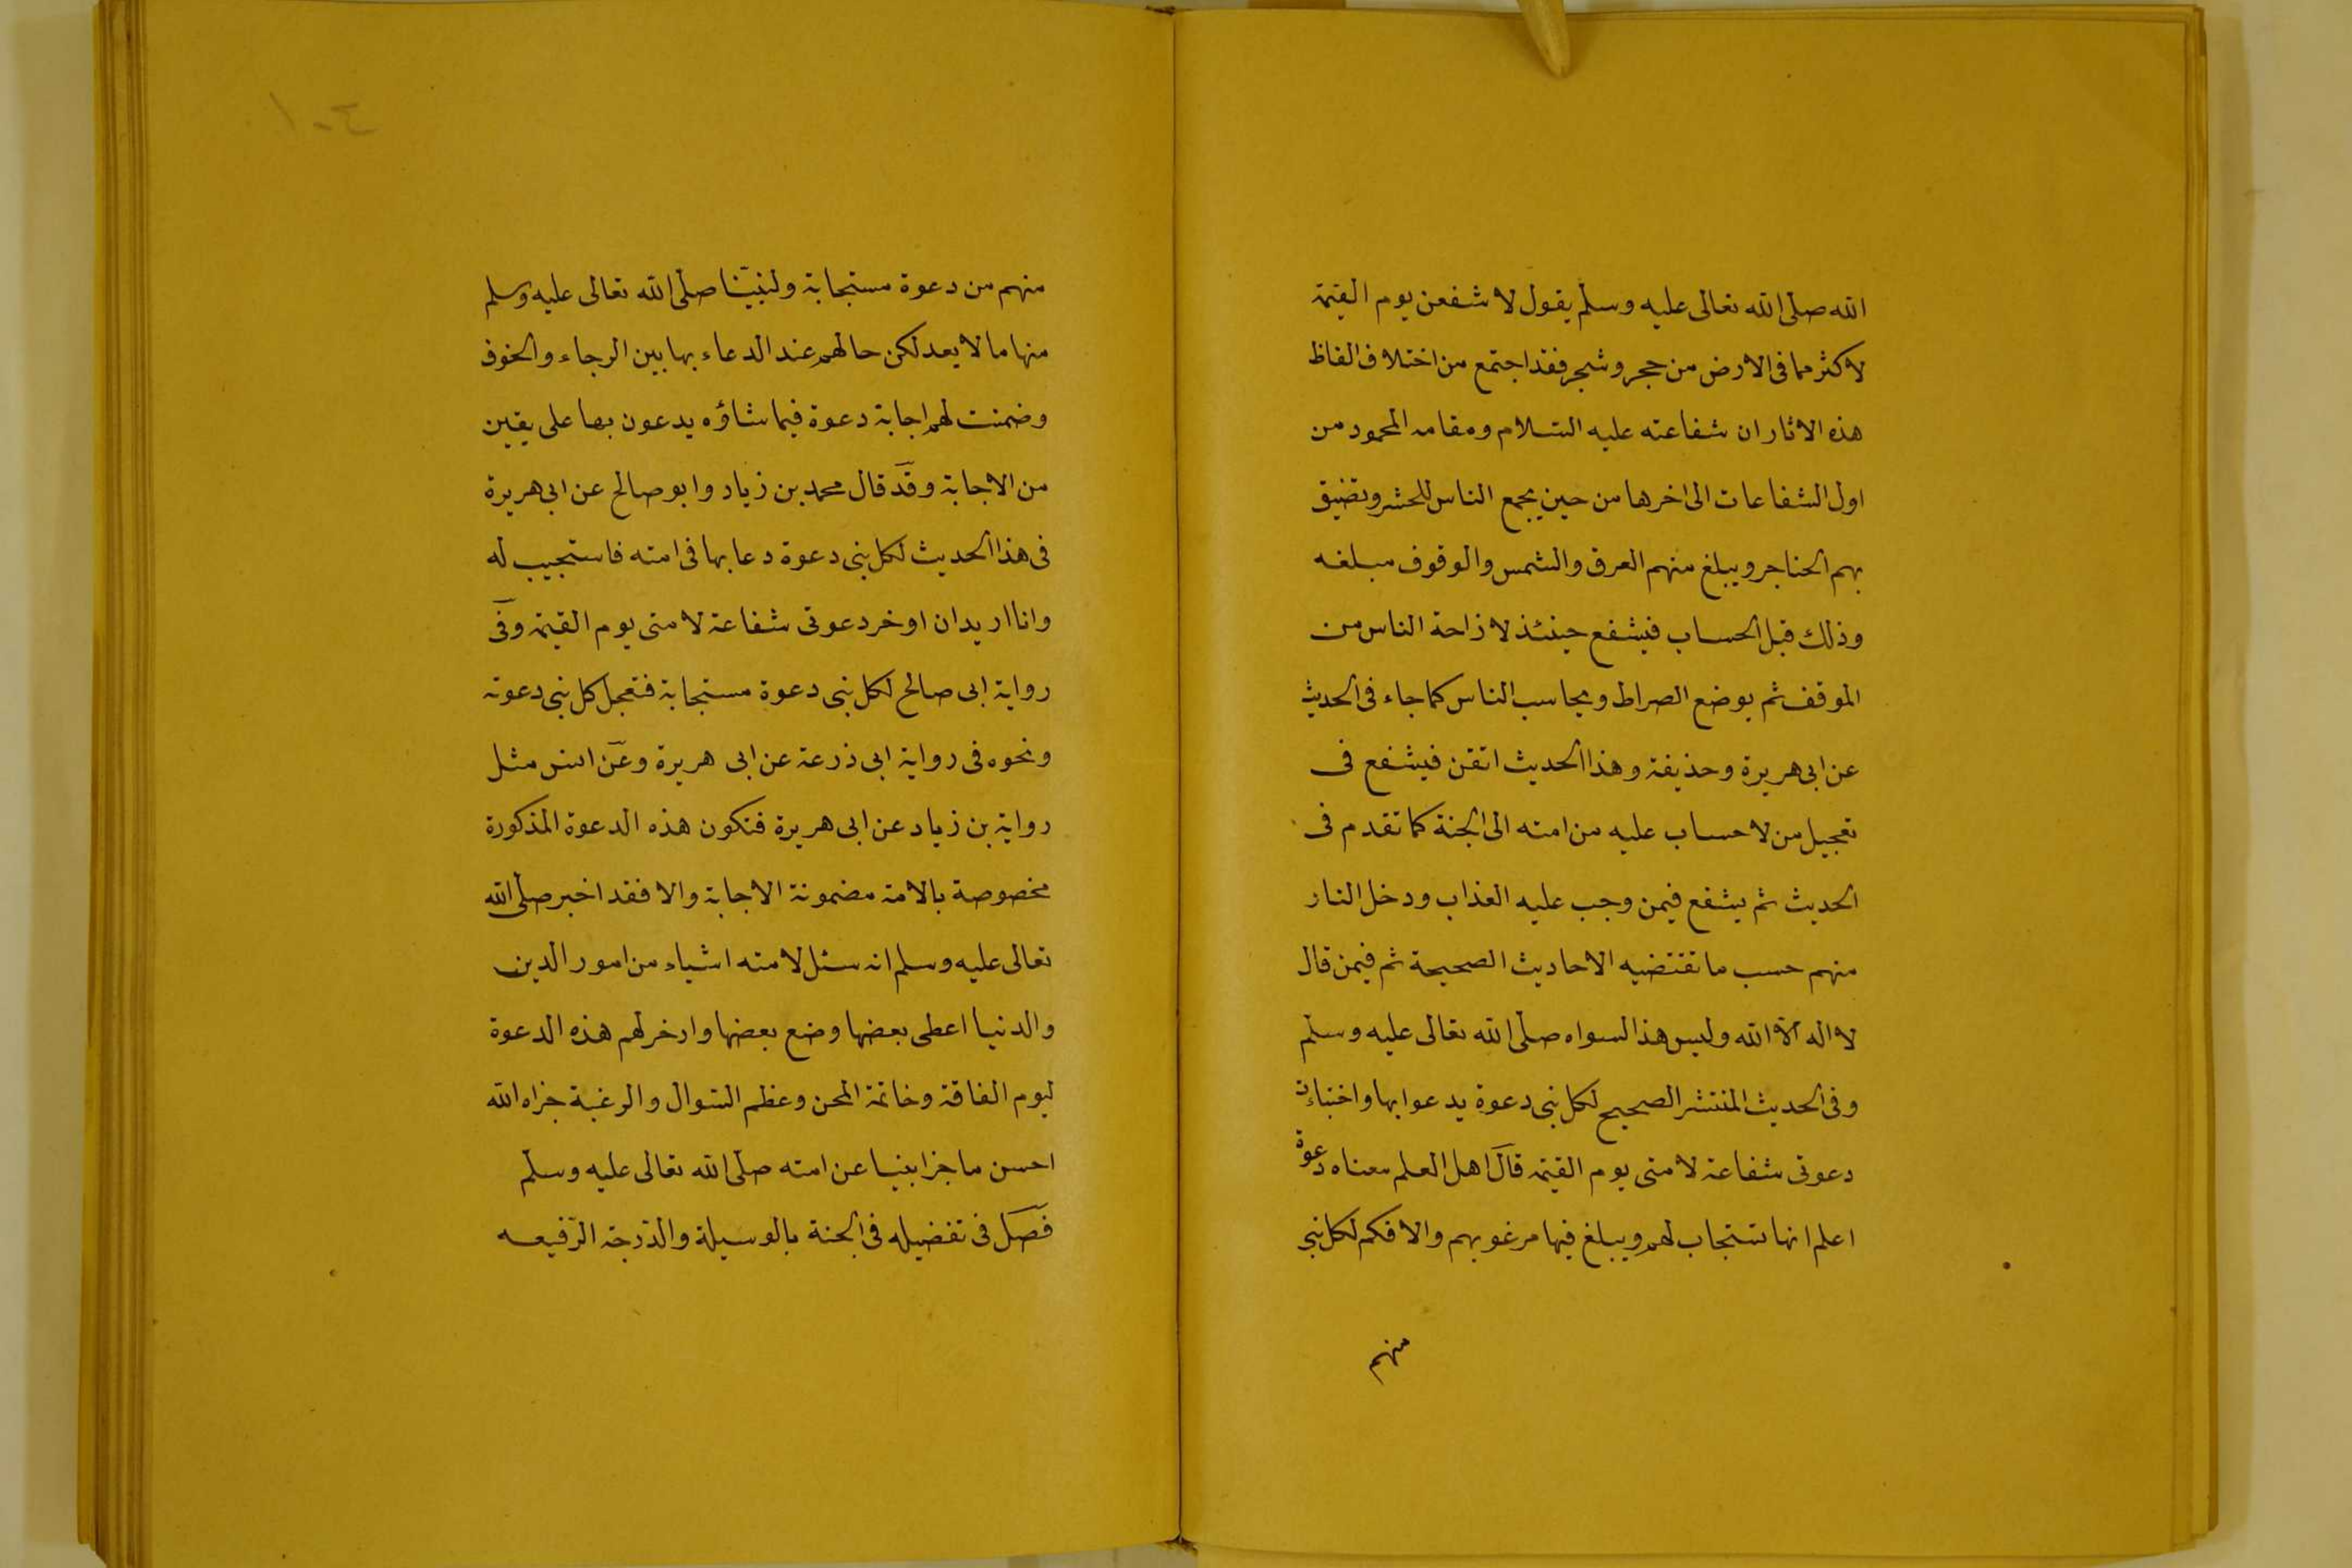 الله صلى الله تعالى عليه وسلم يقول لاشفعن يوم القيمة
لاكثر مما فى الارض من حجر وشجر فقد اجتمع من اختلاف الفاظ
هذه الاثار ان شفاعته عليه السلام ومقامه المحمود من
اول الشفاعات الى اخرها من حين يجمع الناس للحشر وتضيق
بهم الحناجر ويبلغ منهم العرق والشمس والوقوف مبلغه
وذلك قبل الحساب فيشفع حينئذ لازاحة الناس من
الموقف ثم يوضع الصراط ويحاسب الناس كما جاء فى الحديث
عن ابى هريرة وحذيفة وهذا الحديث اتقن فيشفع فى
تعجيل من لاحساب عليه من امته الى الجنة كما تقدم فى
الحديث ثم يشفع فيمن وجب عليه العذاب ودخل النار
منهم حسب ما تقتضيه الاحاديث الصحيحة ثم فيمن قال
لا اله الا الله وليس هذا لسواه صلى الله تعالى عليه وسلم
وفى الحديث المنتشر الصحيح لكل نبى دعوة يدعوا بها واختباءت
دعوتى شفاعة لامتى يوم القيمة قال اهل العلم معناه دعوة
اعلم انها تستجاب لهم ويبلغ فيها مرغوبهم والا فكم لكل نبى
منهم
١٠٤
منهم من دعوة مستجابة ولنبيّنا صلى الله تعالى عليه وسلم
منها ما لا يعد لكن حالهم عند الدعاء بها بين الرجاء والخوف
وضمنت لهم اجابة دعوة فيما شاؤه يدعون بها على يقين
من الاجابة وقد قال محمد بن زياد وابو صالح عن ابى هريرة
فى هذا الحديث لكل نبى دعوة دعا بها فى امته فاستجيب له
وانا اريد ان اوخر دعوتى شفاعة لامتى يوم القيمة وفى
رواية ابى صالح لكل نبى دعوة مستجابة فتعجل كل نبى دعوته
ونحوه فى رواية ابى ذرعة عن ابى هريرة وعن انس مثل
رواية بن زياد عن ابى هريرة فتكون هذه الدعوة المذكورة
مخصوصة بالامة مضمونة الاجابة والا فقد اخبر صلى الله
تعالى عليه وسلم انه سئل لامته اشياء من امور الدين
والدنيا اعطى بعضها وضع بعضها وادخر لهم هذه الدعوة
ليوم الفاقة وخاتمة المحن وعظم السّوال والرغبة جزاه الله
احسن ما جزا بنيا عن امته صلى الله تعالى عليه وسلم
فصل فى تفضيله فى الجنة بالوسيلة والدّرجة الرّفيعه